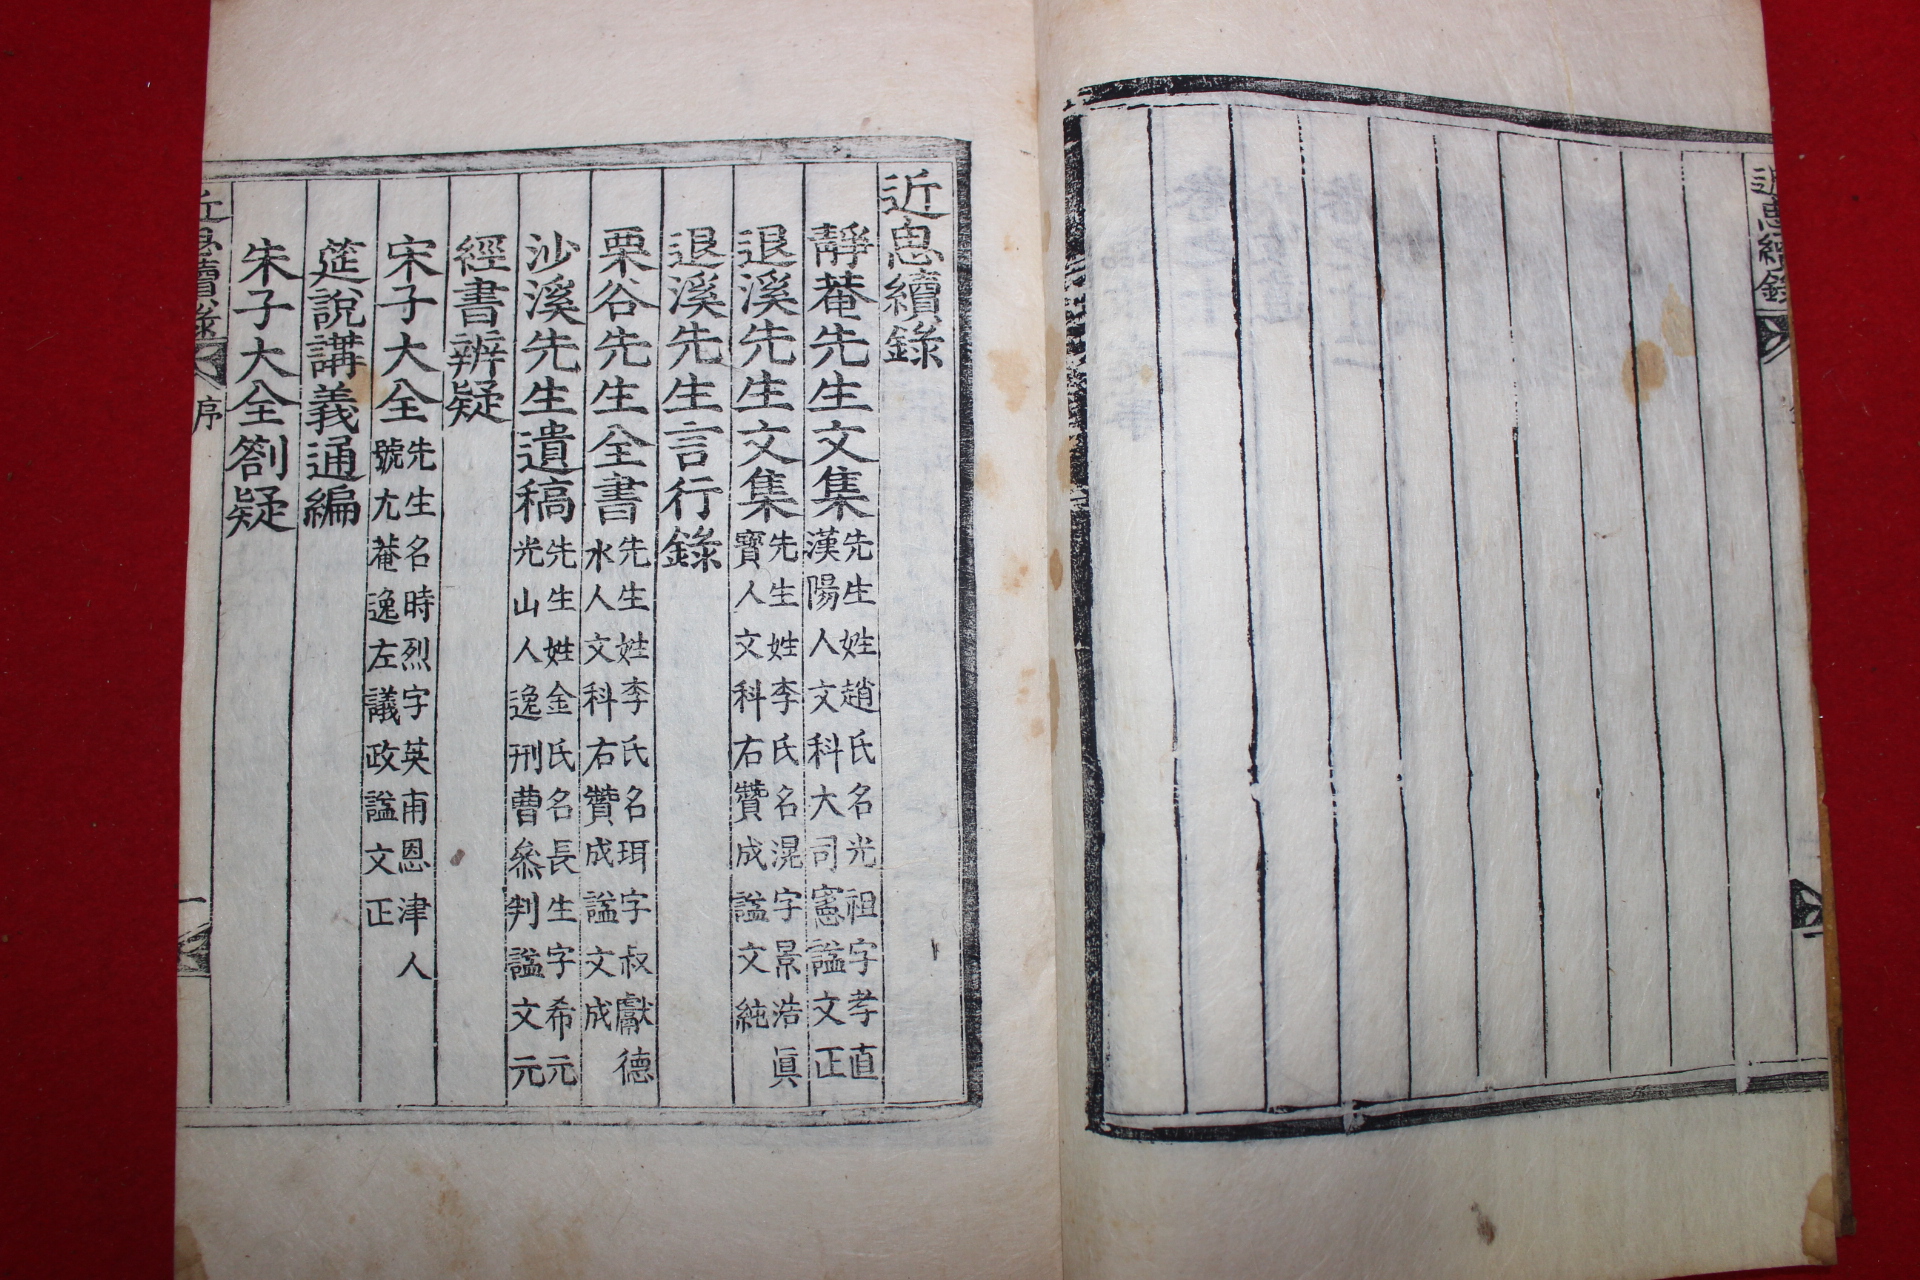 近思續錄
近思續錄
靜菴先生文集 先生姓趙氏名光祖字孝直
漢陽人文科大司憲謚文正
退溪先生文集 先生姓李氏名滉字景浩眞
寶人文科右贊成謚文純
退溪先生言行錄
栗谷先生全書 先生姓李氏名珥字叔獻德
水人文科右贊成謚文成
沙溪先生遺稿 先生姓金氏名長生字希元
光山人逸刑曹叅判謚文元
經書辨疑
宋子大全 先生名時烈字英甫恩津人
號尤菴逸左議政謚文正
筵說講義通編
朱子大全劄疑
近思續錄 序 一